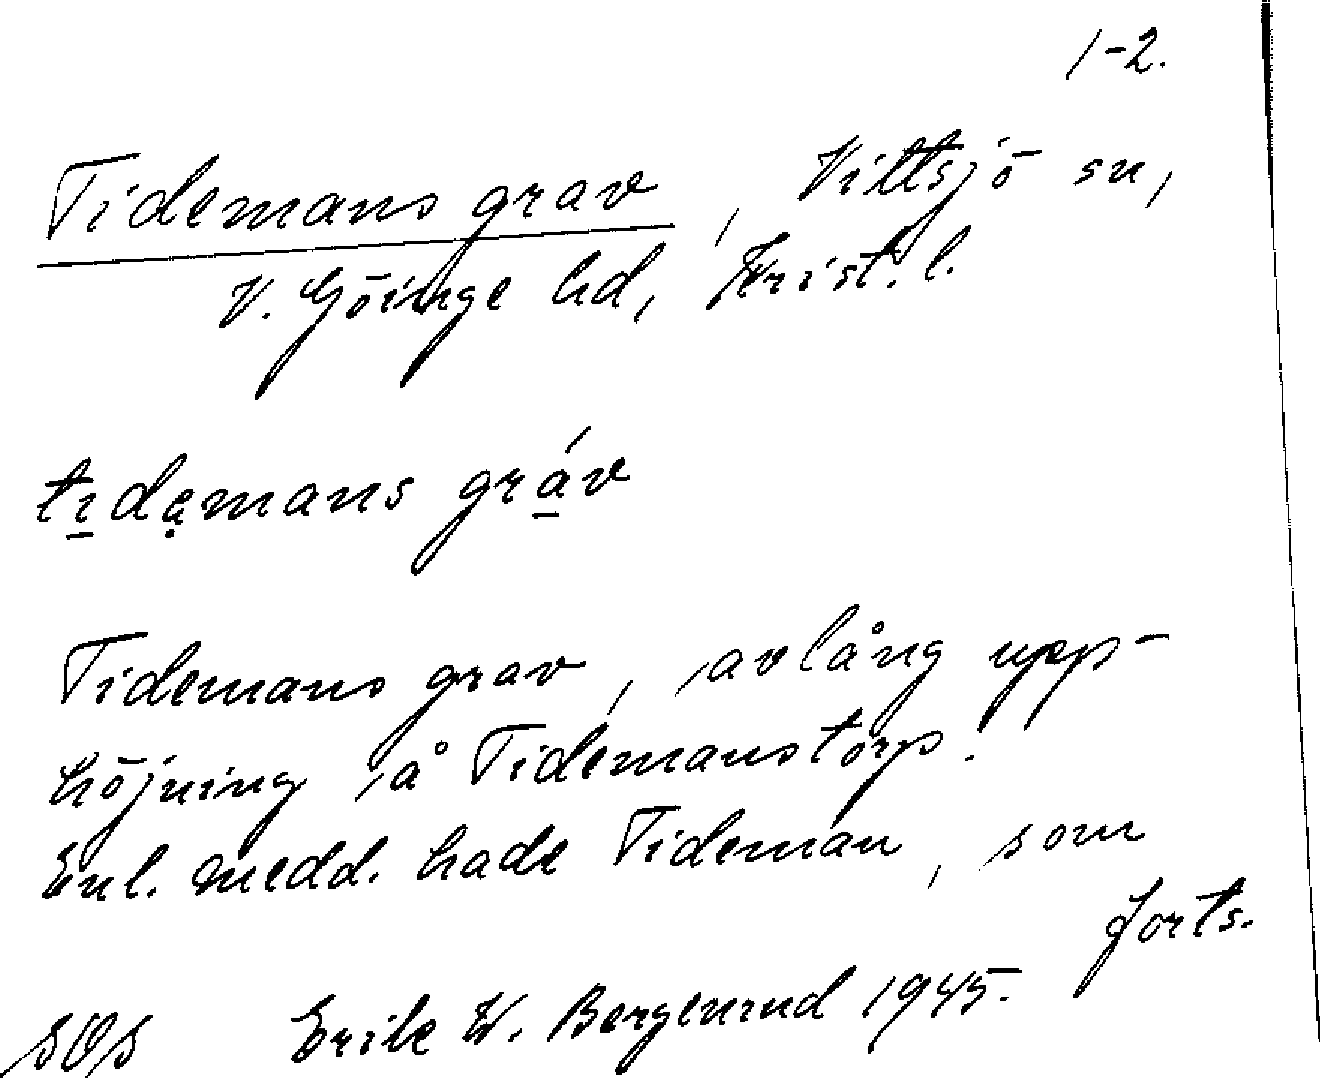 1-2.
Tidemans grav, Vittsjö sn,
V. Göinge hd, Krist. l.
tıdamans gráv
Tidemans grav, avlång upp-
höjning å Tidemanstorp.
Enl. medd. hade Tideman, som
forts.
SOS Erik W. Berglund 1945.